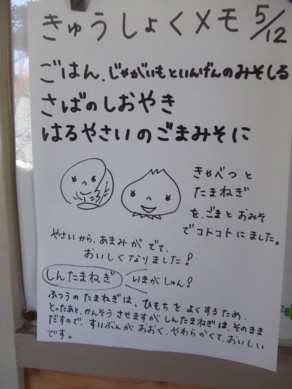 きゅうしょくメモ 5/12
ごはん、じゃがいもといんげんのみそしる
さばのしおやき
はるやさいのごまみそに
きゃべつと
たまねぎ
を、ごまとおみそ
でコトコトにました。
やさいから、あまみがでて、
おいしくなりました!
しんたまねぎ いまがしゅん?
ふつうのたまねぎは、ひもちをよくするため、
とったあと、かんそうさせますがしんたまねぎは、そのまま
だすので、すいぶんがおおく、やわらかくて、おいしい
です。